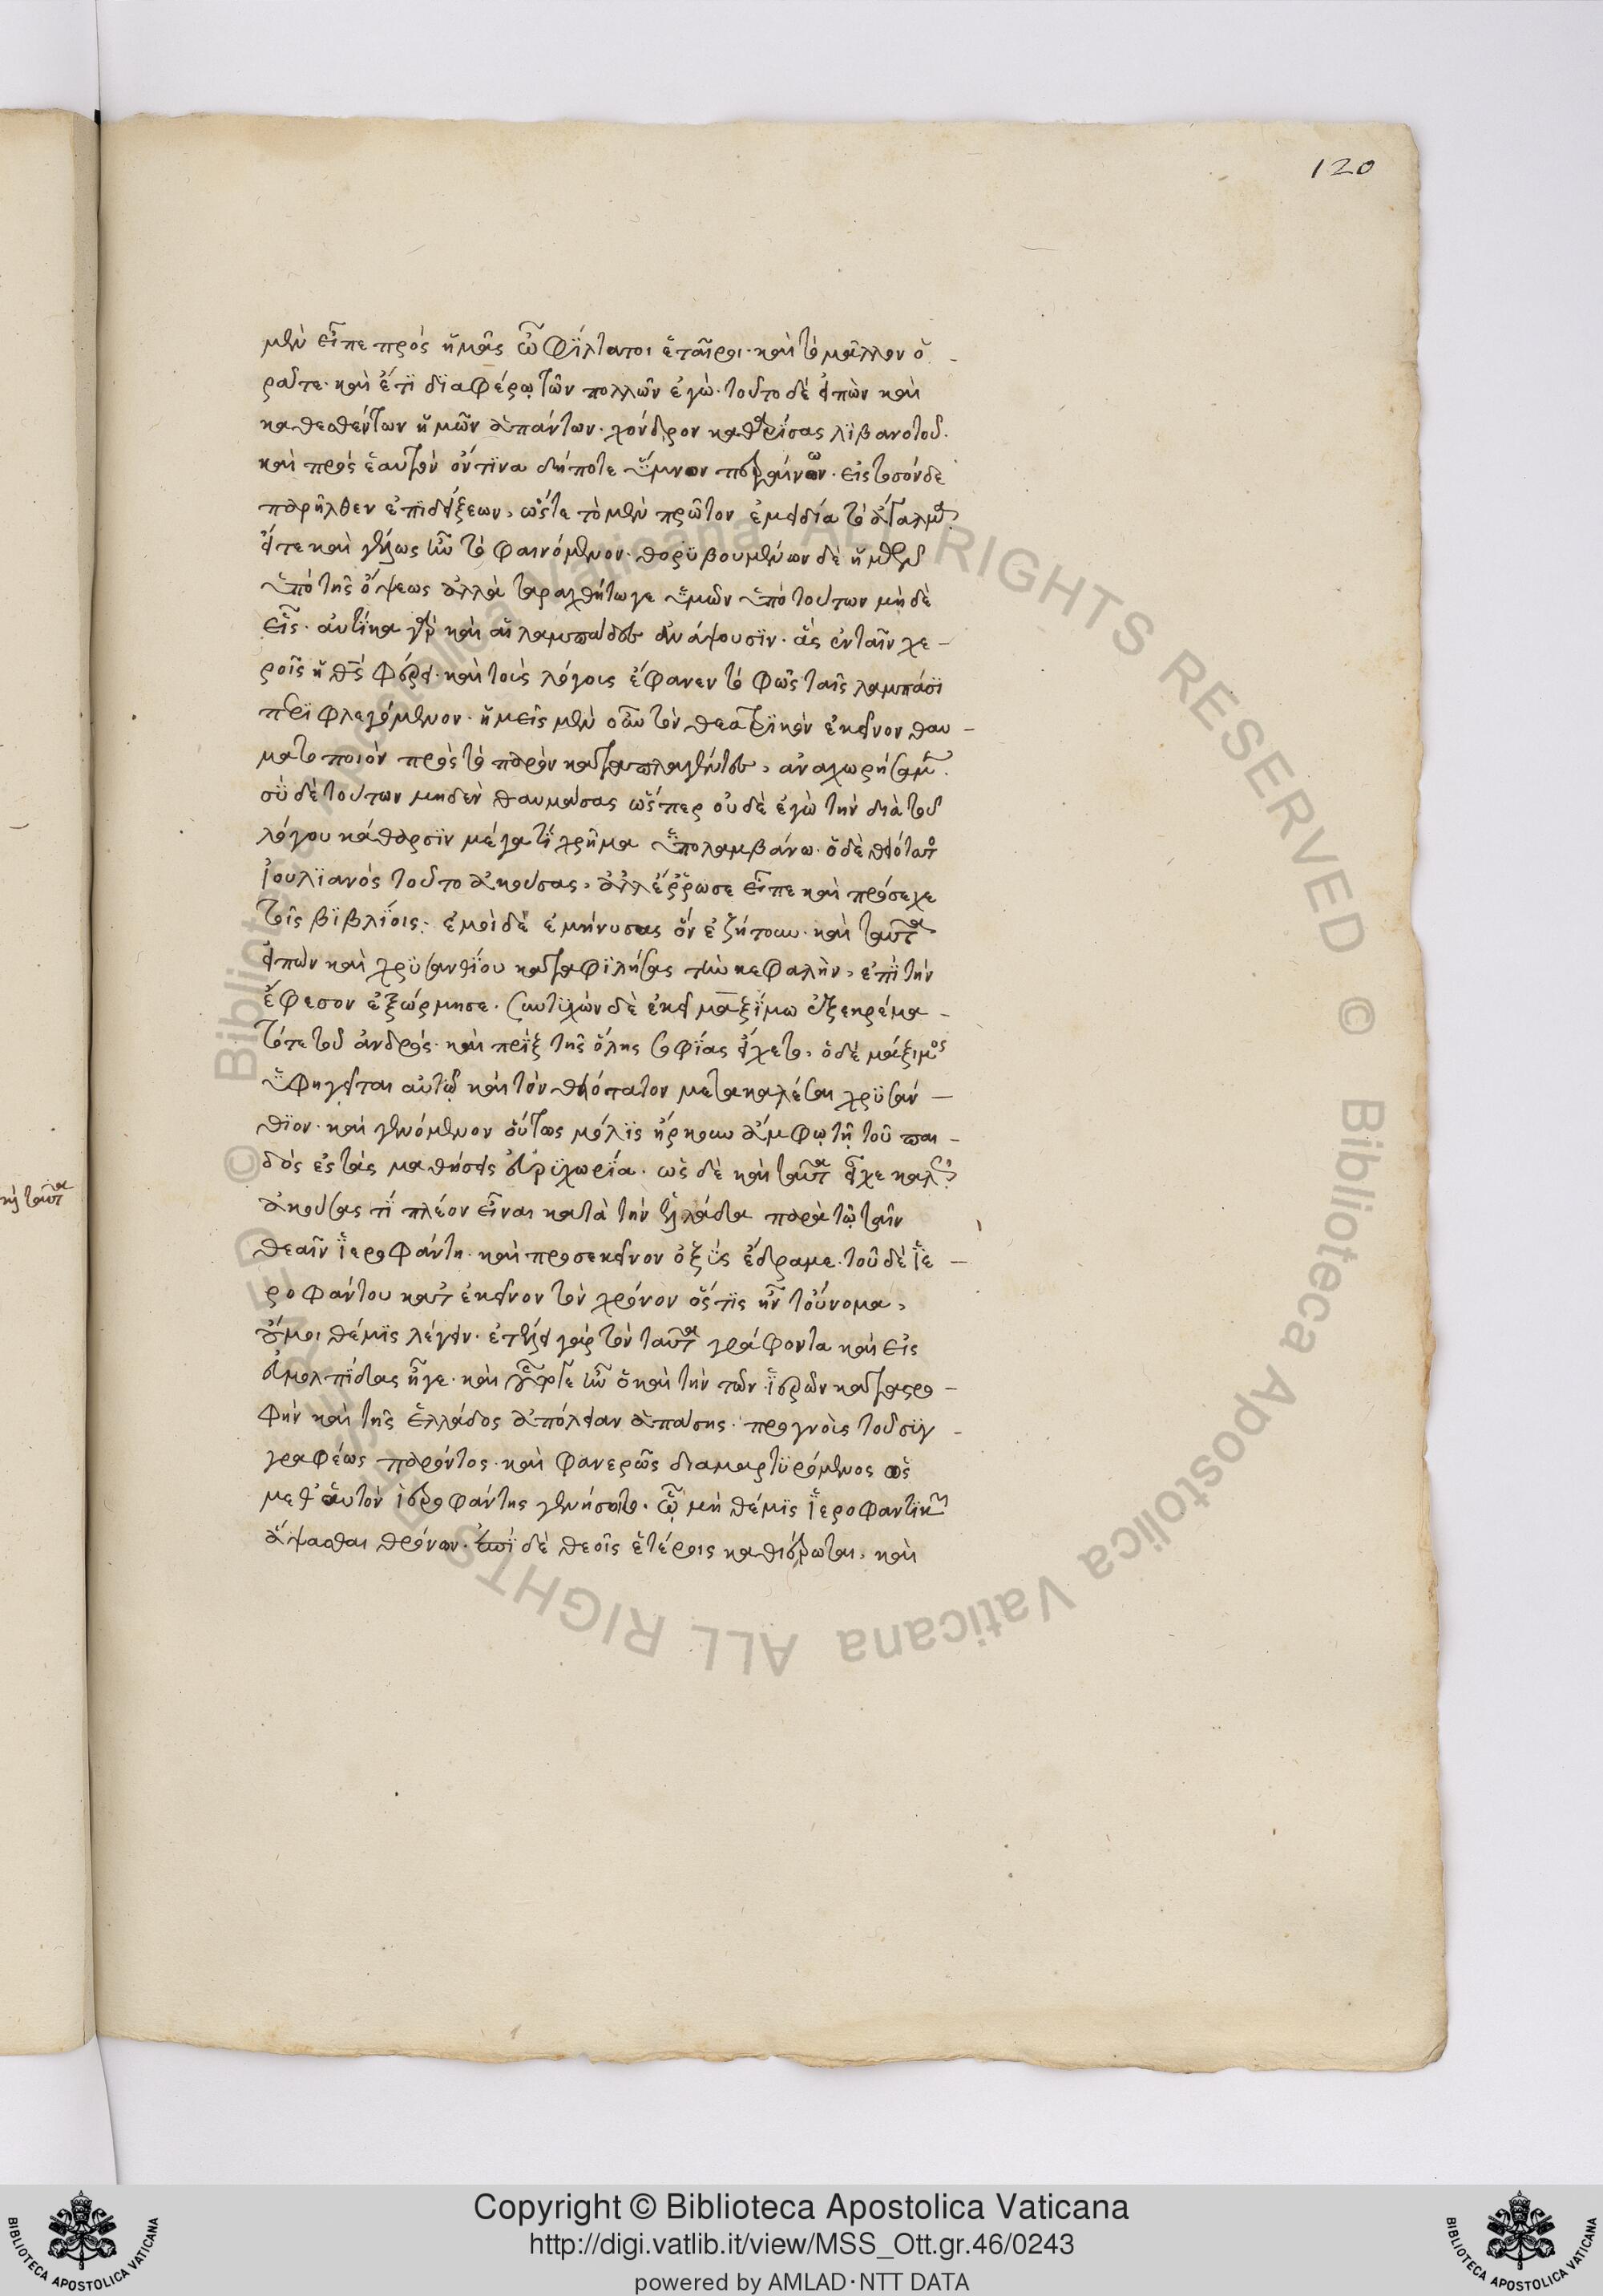 120
μὲν εἶπε πρὸς ἡμᾶς ὦ φίλτατοι ἑταῖροι· καὶ τὸ μᾶλλον ὁ
ρᾶτε· καὶ ἔτι διαφέρω τῶν πολλῶν ἐγώ· τοῦτο δὲ εἰπὼν καὶ
καθεσθέντων ἡμῶν ἁπάντων· χόνδρον καθαρίσας λιβανωτοῦ·
καὶ πρὸς ἑαυτὸν ὅντινα δήποτε ὕμνον περαίνων· εἰς τοσόνδε
παρῆλθεν ἐπιδείξεων, ὥστε τὸ μὲν πρῶτον ἐμειδία τὸ ἄγαλμα
εἶτε καὶ γέλως ἦν τὸ φαινόμενον· θορυβουμένων δὲ ἡμῶν
ὑπὸ τῆς ὄψεως ἀλλὰ ταραχθήτω γε ὑμῶν ὑπὸ τούτων μηδὲ
εἷς· αὐτίκα γὰρ καὶ αἱ λαμπάδες ἀνάψουσιν· ἃς ἐν ταῖν χε
ροῖν ἡ θεὸς φέρει· καὶ τοὺς λόγοις ἔφανεν τὸ φῶς ταῖς λαμπάσι
περιφλεγόμενον· ἡμεῖς μὲν οὖν τὸν θεατρικὸν ἐκεῖνον θαυ
ματοποιὸν πρὸς τὸ παρὸν καταπλαγέντες, ἀναχωρήσαμεν·
σὺ δὲ τούτων μηδὲν θαυμάσας ὥσπερ οὐδὲ ἐγὼ τὴν διὰ τοῦ
λόγου κάθαρσιν μέγα τι χρῆμα ὑπολαμβάνω· ὁ δὲ θειότατος
Ἰουλιανὸς τοῦτο ἀκούσας, ἀλλ' ἔρρωσο εἶπε καὶ πρόσεχε
τοῖς βιβλίοις· ἐμοὶ δὲ ἐμήνυσας ὃν ἐζήτουν· καὶ ταῦτα
εἰπὼν καὶ χρυσανθίου καταφιλήσας τὴν κεφαλὴν, ἐπὶ τὴν
ἔφεσον ἐξώρμησε· συντυχὼν δὲ ἐκεῖ μαξίμω ἐξεκρέμα
τό τε τοῦ ἀνδρός· καὶ πρὶξ τῆς ὅλης σοφίας εἴχετο, ὁ δὲ μάξιμος
ὑφηγεῖται αὐτῷ καὶ τὸν θειότατον μετακαλέσαι χρυσάν
θιον· καὶ γενόμενον οὕτως μόλις ἤρκουν ἄμφω τῇ τοῦ παι
δὸς ἐς τὰς μαθήσεις εὐρυχωρία· ὡς δὲ καὶ ταῦτα εἶχε καλῶς
ἀκούσας τι πλέον εἶναι κατὰ τὴν ἑλλάδα παρὰ τῷ ταῖν
θεαῖν ἱεροφάντη· καὶ πρὸς ἐκεῖνον ὀξὺς ἔδραμε· τοῦ δὲ ἱε
ροφάντου κατ' ἐκεῖνον τὸν χρόνον ὅστις ἦν τοὔνομα,
οὔ μοι θέμις λέγειν· ἐτέλει γὰρ τὸν ταῦτα γράφοντα καὶ εἰς
εὐμολπίδας ἦγε· καὶ οὗτός γε ἦν ὁ καὶ τὴν τῶν ἱερῶν καταστρο
φὴν καὶ τῆς ἑλλάδος ἀπόλειαν ἁπάσης· προγνοὺς τοῦ συγ
γραφέως παρόντος· καὶ φανερῶς διαμαρτυρόμενος ὡς
μεθ' αὑτὸν ἱεροφάντης γενήσοιτο· ᾧ μὴ θέμις ἱεροφαντικῶν
ἅψασθαι θρόνων· ἐπεὶ δὲ θεοῖς ἑτέροις καθιέρωται, καὶ
καὶ ταῦτα
Copyright © Biblioteca Apostolica Vaticana
http://digi.vatlib.it/view/MSS_Ott.gr.46/0243
powered by AMLAD·NTT DATA
BIBLIOTECA APOSTOLICA VATICANA
BIBLIOTECA APOSTOLICA VATICANA
© Biblioteca Apostolica Vaticana ALL RIGHTS RESERVED © Biblioteca Apostolica Vaticana ALL RIGHTS RESERVED